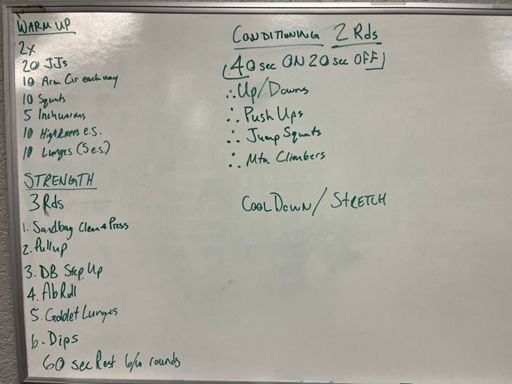 WARM UP
2x
20 JJs
10 Arm Cir each way
10 Squats
5 Inchworms
10 High Knees e.s.
10 Lunges (5 e.s.)
STRENGTH
3 Rds
1. Sandbag Clean & Press
2. Pullup
3. DB Step Up
4. Ab Roll
5. Goblet Lunges
6. Dips
60 sec Rest b/w rounds
CONDITIONING 2 Rds
(40 sec ON 20 sec OFF)
∴ Up/Downs
∴ Push Ups
∴ Jump Squats
∴ Mtn Climbers
COOL DOWN / STRETCH